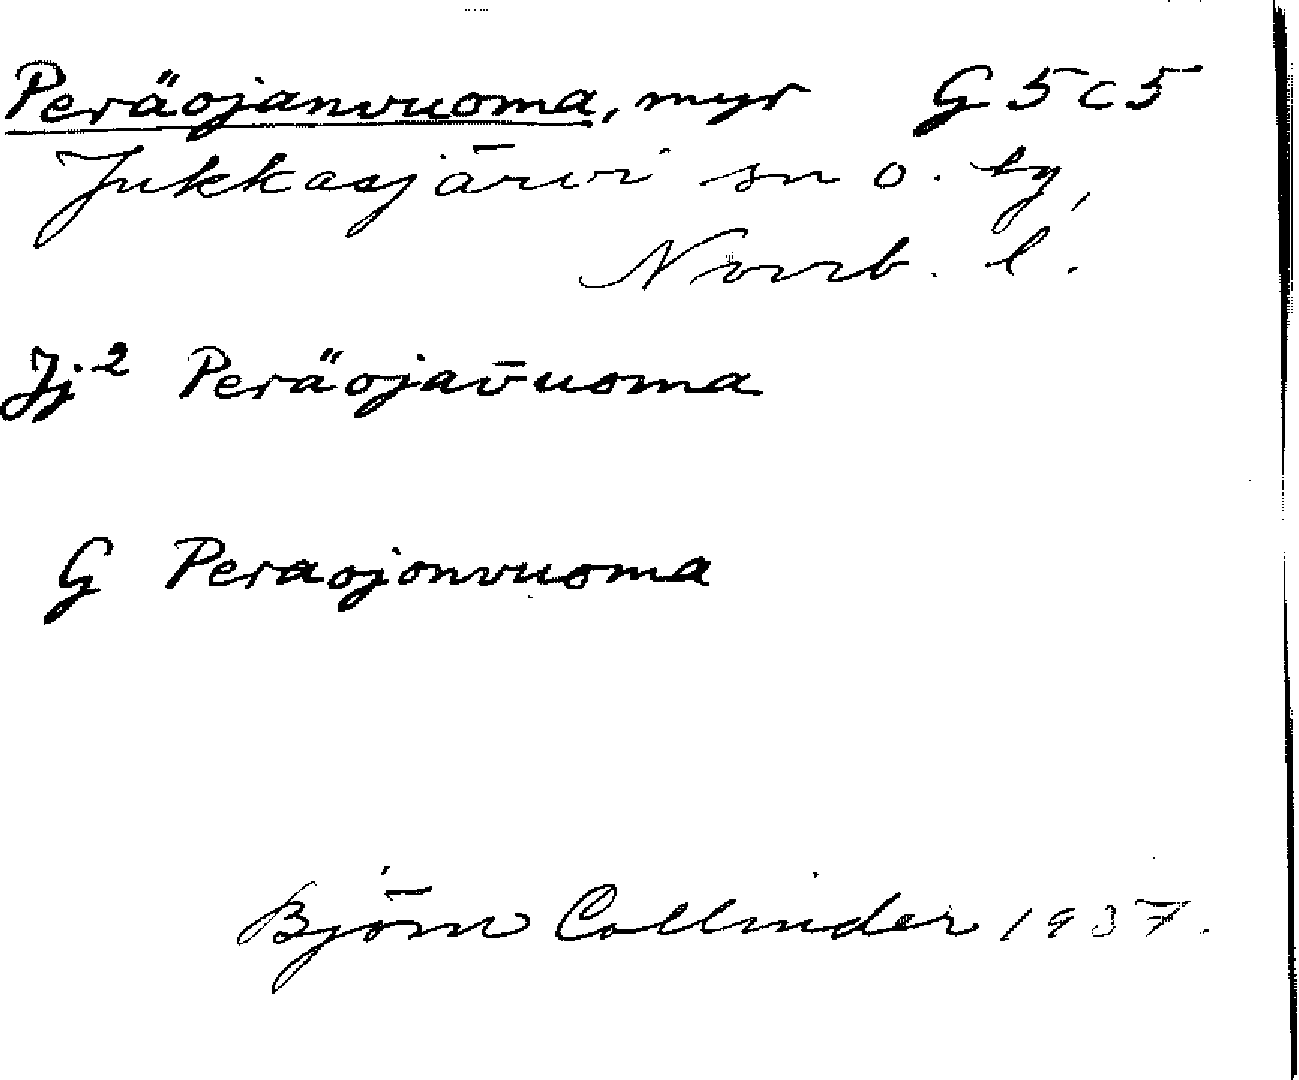 Peräojanvuoma, myr G5c5
Jukkasjärvi sn o. tg,
Norrb. l.
Jj2 Peräojavuoma
G Peraojonvuoma
Björn Collinder 1937.